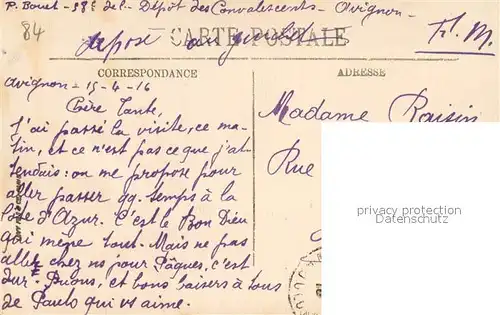 P. Bouet - 58e de l. - Dépôt des Convalescents - Avignon -
84
déposé
CARTE POSTALE
F. M.
CORRESPONDANCE
ADRESSE
Avignon - 15-4-16
Chère Tante,
J'ai passé la visite, ce ma-
tin, et ce n'est pas ce que j'at-
tendais : on me propose pour
aller passer qq. temps à la
Côte d'Azur. C'est le Bon Dieu
qui mène tout. Mais ne pas
aller chez ns pour Pâques, c'est
dur. Prions, et bons baisers à tous
de Paulo qui vs aime.
Madame Raisin
Rue
privacy protection
Datenschutz